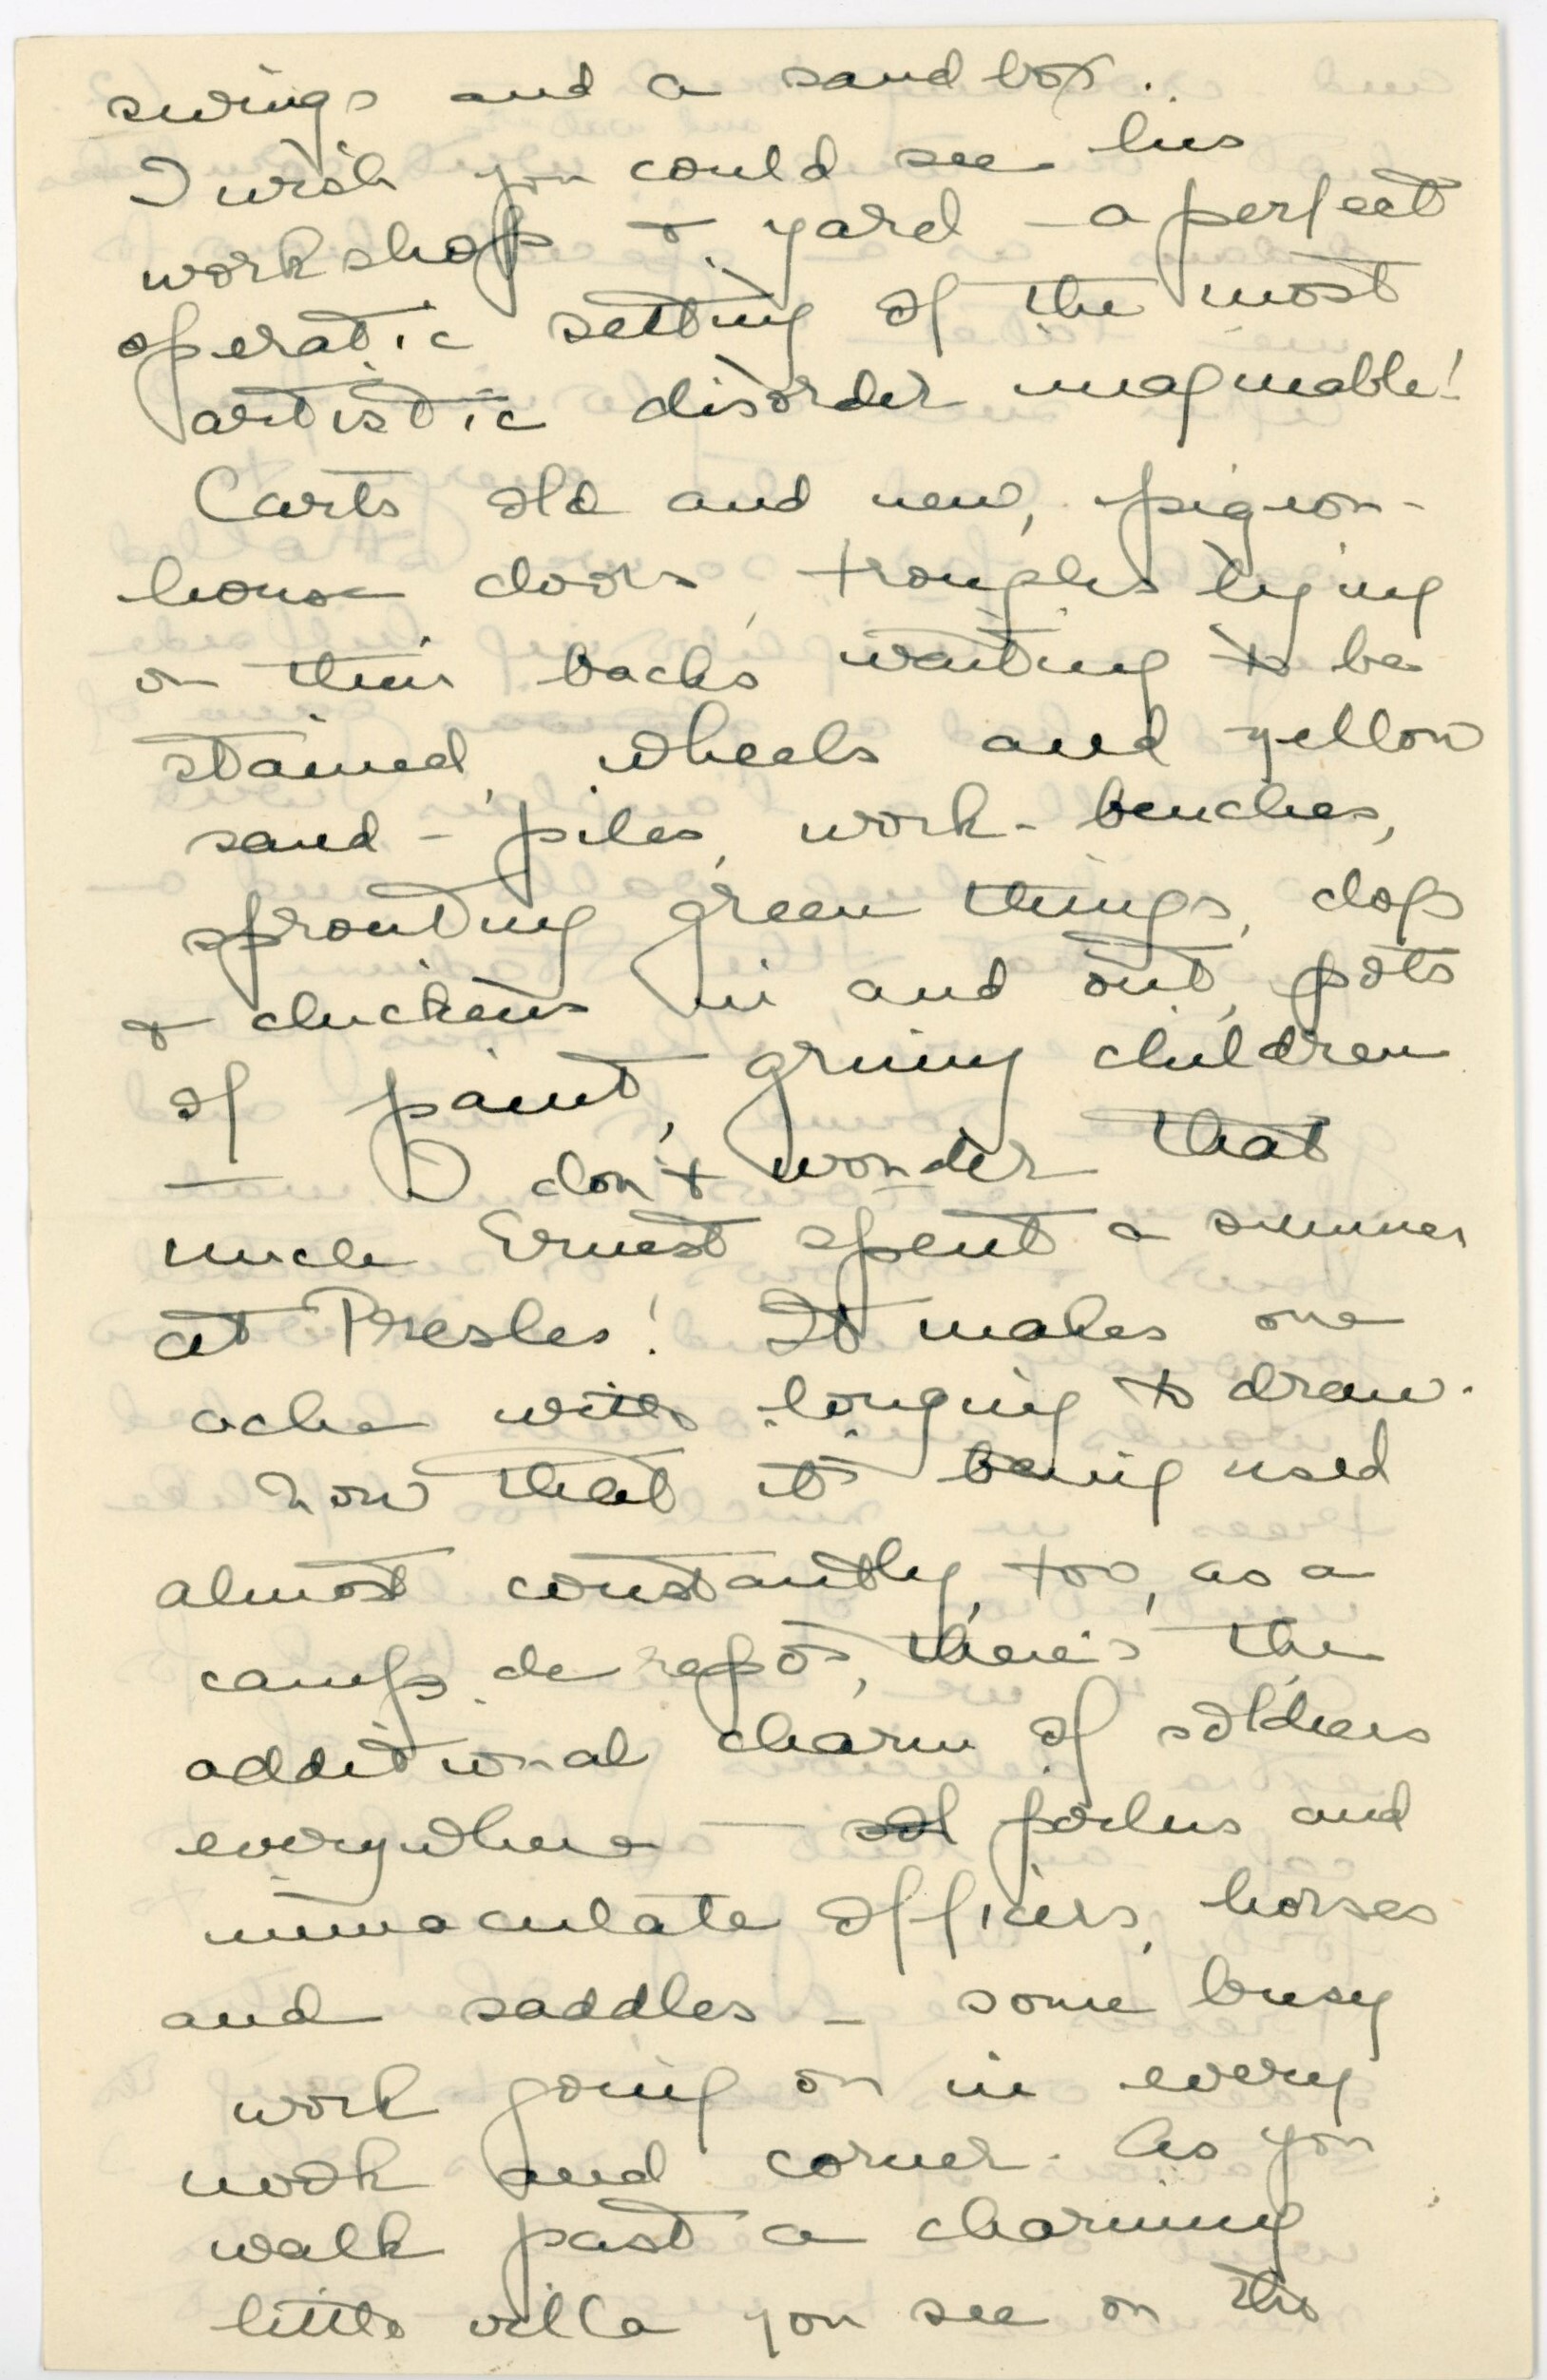 swings and a sand box.
I wish you could see his
workshop & yard - a perfect
operatic setting of the most
artistic disorder imaginable!
Carts old and new, pigeon-
house doors, troughs lying
on their backs waiting to be
stained, wheels and yellow
sand-piles, work-benches,
sprouting green things, dogs
& chickens in and out, pots
of paint, grimy children
— I don't wonder that
uncle Ernest spent a summer
at Presles! It makes one
ache with longing to draw.
Now that it's being used
almost constantly, too, as a
camp de repos, there's the
additional charm of soldiers
everywhere — sol poilus and
immaculate officers, horses
and saddles - some busy
work going on in every
nook and corner. As you
walk past a charming
little villa you see on the